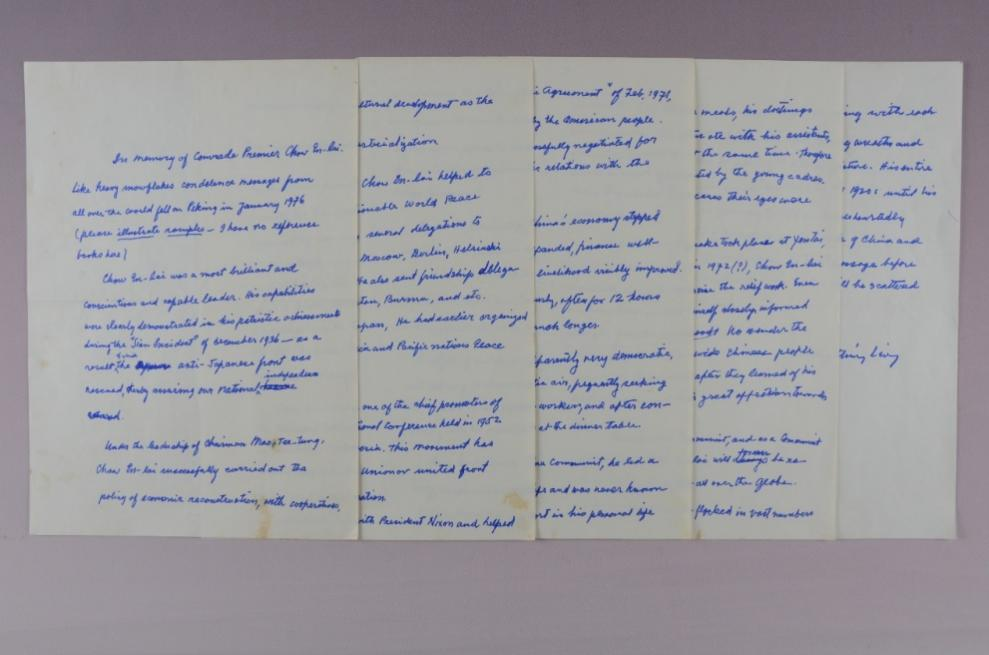 In memory of Comrade Premier Chow En-lai.
Like heavy snowflakes condolence messages from
all over the world fell on Peking in January 1976
(please illustrate samples — I have no reference
books here)
Chow En-lai was a most brilliant and
conscientious and capable leader. His capabilities
were clearly demonstrated in his patriotic achievements
during the "Sian Incident" of December 1936 — as a
result, the anti-Japanese front was
rescued, thereby assuring our national independence
Under the leadership of Chairman Mao Tse-Tung,
Chow En-lai successfully carried out the
policy of economic reconstruction, with cooperatives,
ltural development as the
ustrialization
Chow En-lai helped to
ionable World Peace
several delegations to
Moscow, Berlin, Helsinki
He also sent friendship delega
Burma, and etc.
apan, He had earlier organized
sia and Pacific nations Peace
one of the chief promoters of
ional Conference held in 1952
This monument has
union or united front
ation
ith President Nixon and helped
i Agreement" of Feb, 1972,
by the American people.
ssfully negotiated for
relations with the
China's economy stopped
panded, finance well-
livelihood visibly improved.
usly, often for 12 hours
much longer.
parently very democratic,
tic airs, frequently seeking
workers, and after con-
at the dinner table.
a Communist, he led a
ife and was never known
rt in his personal life
meals, his doctings
ate with his assistants,
the same time. Therefore
ted by the young cadres.
cases their eyes were
uake took place at
n 1972(?), Chow En-lai
vise the relief work. Even
mself closely informed
No wonder the
wide Chinese people
after they learned of his
great affection towards
munist, and as a Communist
lai will forever be re-
all over the Globe.
flocked in vast numbers
ing with each
g wreaths and
His entire
1920s until his
heartedly
g China and
message before
ll be scattered
living